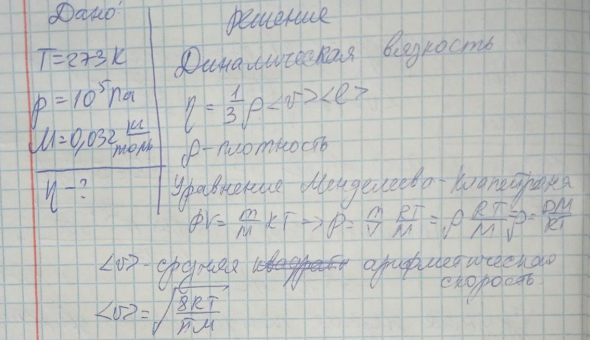 Дано:
T=273K
p=10⁵Па
M=0,032 кг/моль
η-?
Решение
Динамическая вязкость
η = 1/3 ρ<v><l>
ρ-плотность
Уравнение Менделеева-Клапейрона
PV = m/M RT → p = m/V RT/M = ρ RT/M ρ = pM/RT
<v>-средняя арифметическая
скорость
<v>=√(8RT/πM)